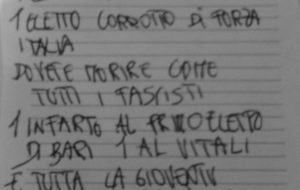 1 ELETTO CORROTTO DI FORZA
ITALIA
DOVETE MORIRE COME
TUTTI I FASCISTI
1 INFARTO AL PRIMO ELETTO
DI BARI 1 AL VITALI
E TUTTA LA GIOVENTU